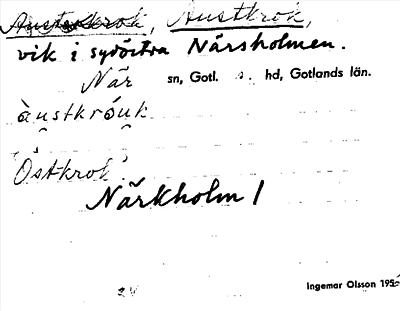 Austkrok, Austkrok,
vik i sydöstra Närsholmen.
När sn, Gotl. s. hd, Gotlands län.
àu̯stkróu̯k
Östkrok.
Närkholm 1
Ingemar Olsson 195